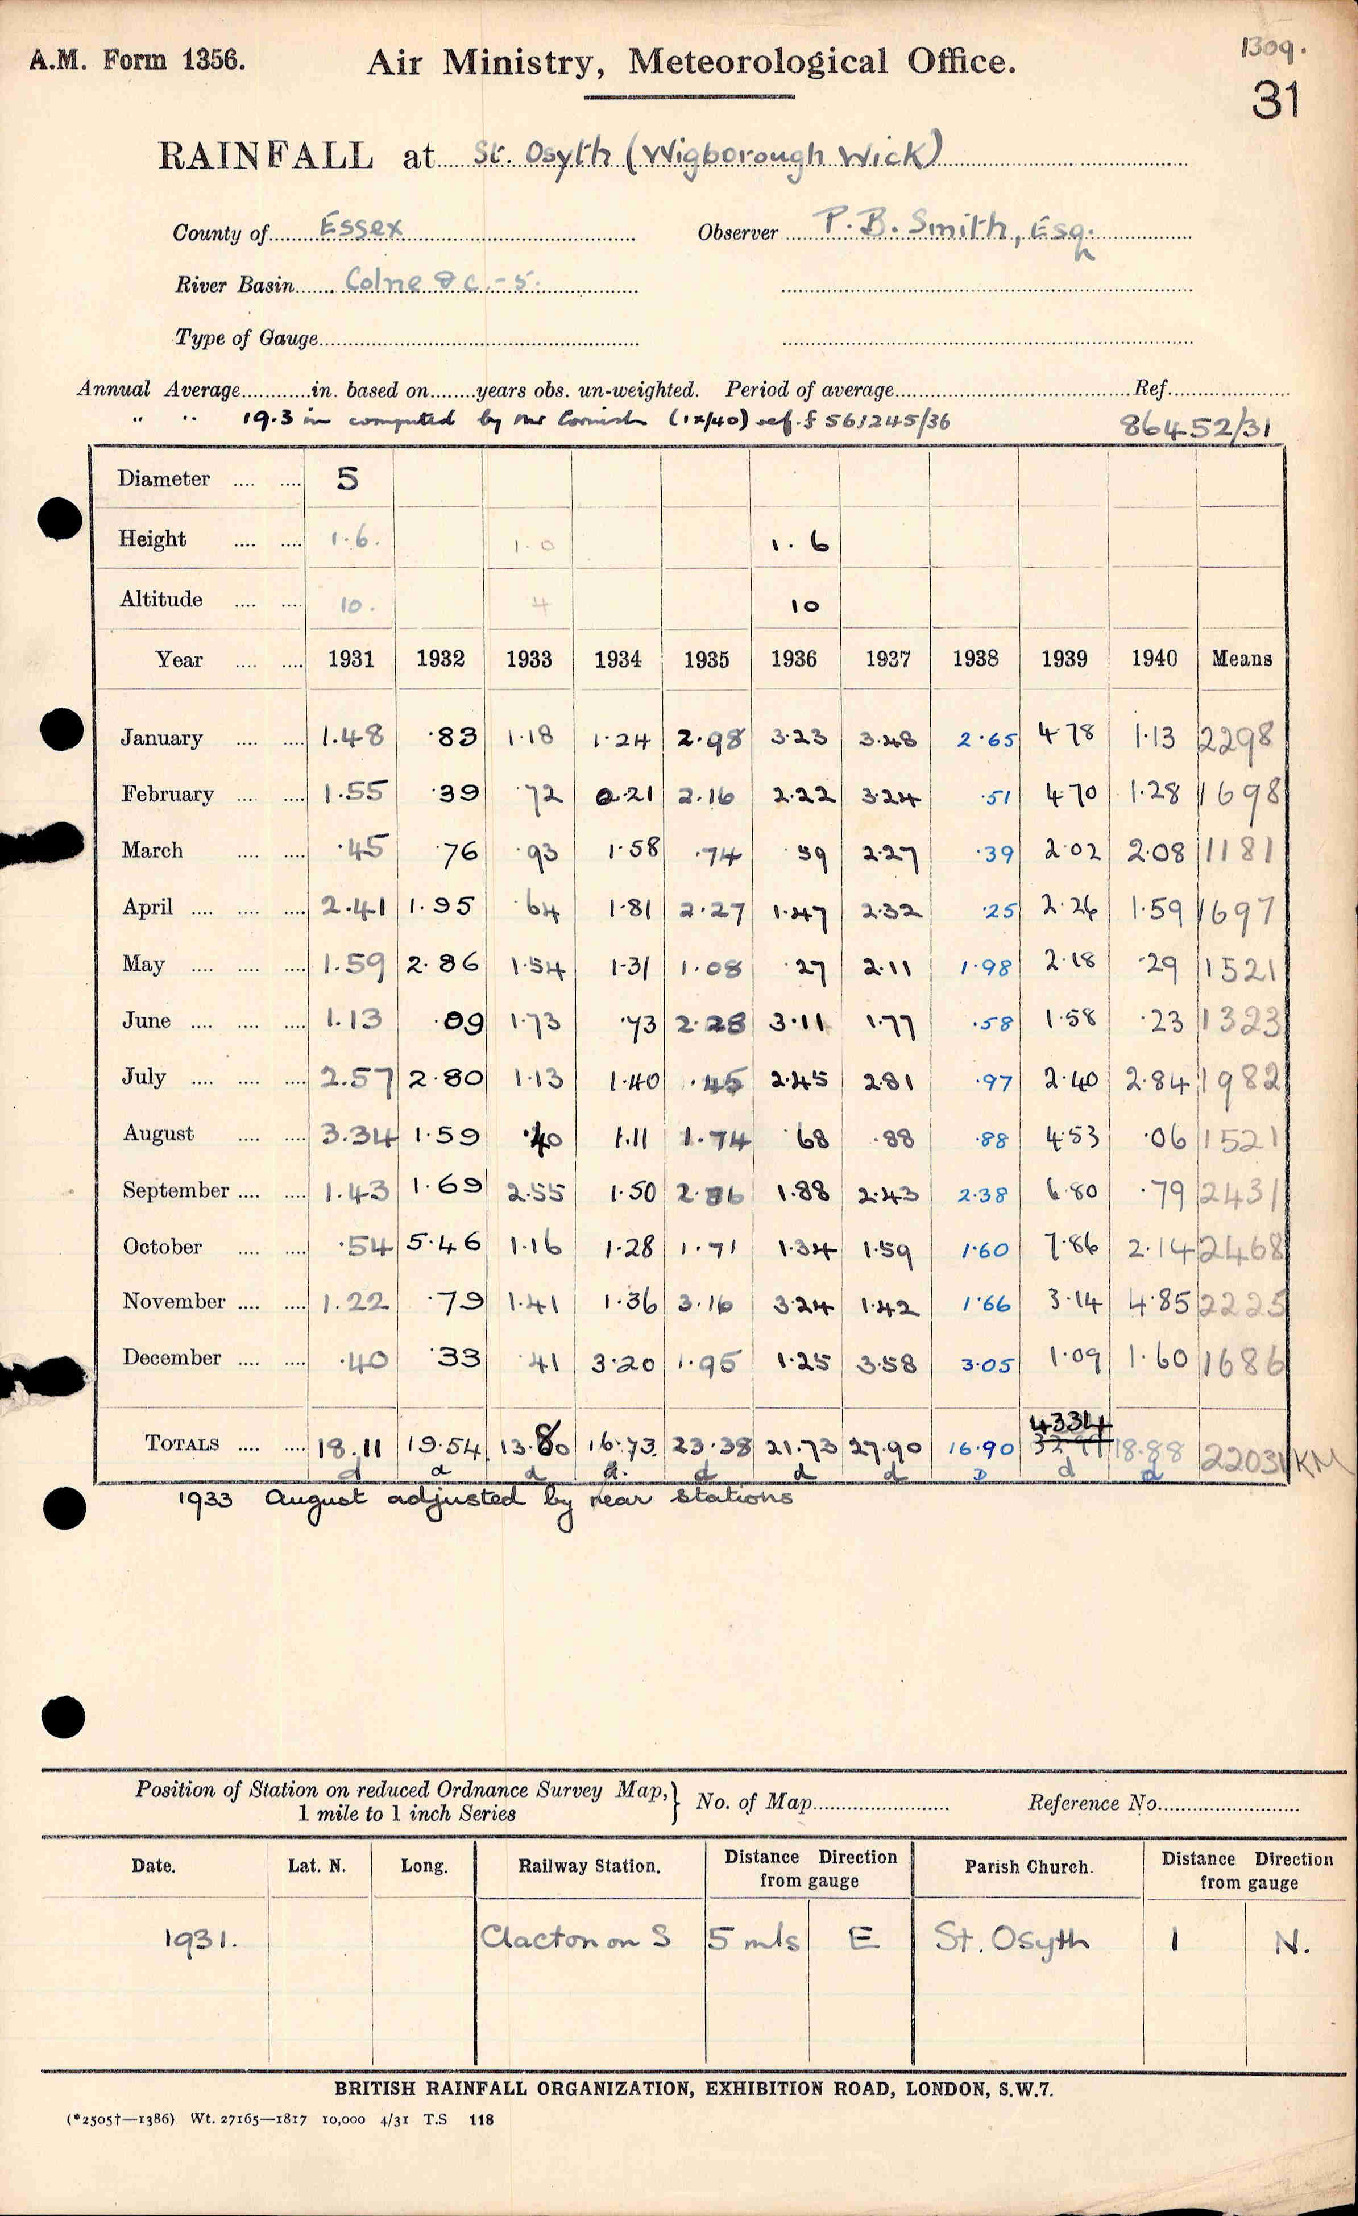 1309.
A.M. Form 1356. Air Ministry, Meteorological Office.
31
RAINFALL at St. Osyth (Wigborough Wick)
County of Essex Observer P. B. Smith, Esq.
River Basin Colne &c. - 5.
Type of Gauge
Annual Average in. based on years obs. un-weighted. Period of average Ref.
" " 19.3 in computed by Mr Cornish (1x/40) ref. S 561245/36 86452/31
Diameter 5
Height 1.6. 1.0 1.6
Altitude 10. 4 10
Year 1931 1932 1933 1934 1935 1936 1937 1938 1939 1940 Means
January 1.48 .83 1.18 1.24 2.98 3.23 3.48 2.65 4.78 1.13 2298
February 1.55 .39 .72 0.21 2.16 2.22 3.24 .51 4.70 1.28 1698
March .45 .76 .93 1.58 .74 .59 2.27 .39 2.02 2.08 1181
April 2.41 1.95 .64 1.81 2.27 1.47 2.32 .25 2.26 1.59 1697
May 1.59 2.86 1.54 1.31 1.08 .27 2.11 1.98 2.18 .29 1521
June 1.13 .09 1.73 .73 2.28 3.11 1.77 .58 1.58 .23 1323
July 2.57 2.80 1.13 1.40 .45 2.45 2.81 .97 2.40 2.84 1982
August 3.34 1.59 .40 1.11 1.74 .68 .88 .88 4.53 .06 1521
September 1.43 1.69 2.55 1.50 2.86 1.88 2.43 2.38 6.80 .79 2431
October .54 5.46 1.16 1.28 1.71 1.34 1.59 1.60 7.86 2.14 2468
November 1.22 .79 1.41 1.36 3.16 3.24 1.42 1.66 3.14 4.85 2225
December .40 .33 .41 3.20 1.95 1.25 3.58 3.05 1.09 1.60 1686
4334
TOTALS 18.11 19.54 13.80 16.73 23.38 21.73 27.90 16.90 18.88 22031 KM
d d d d. d d d D d d
1933 August adjusted by near stations
Position of Station on reduced Ordnance Survey Map,} No. of Map Reference No.
1 mile to 1 inch Series
Date. Lat. N. Long. Railway Station. Distance Direction from gauge Parish Church. Distance Direction from gauge
1931. Clacton on S 5 mls E St. Osyth 1 N.
BRITISH RAINFALL ORGANIZATION, EXHIBITION ROAD, LONDON, S.W.7.
(*2505†—1386) Wt. 27165—1817 10,000 4/31 T.S 118